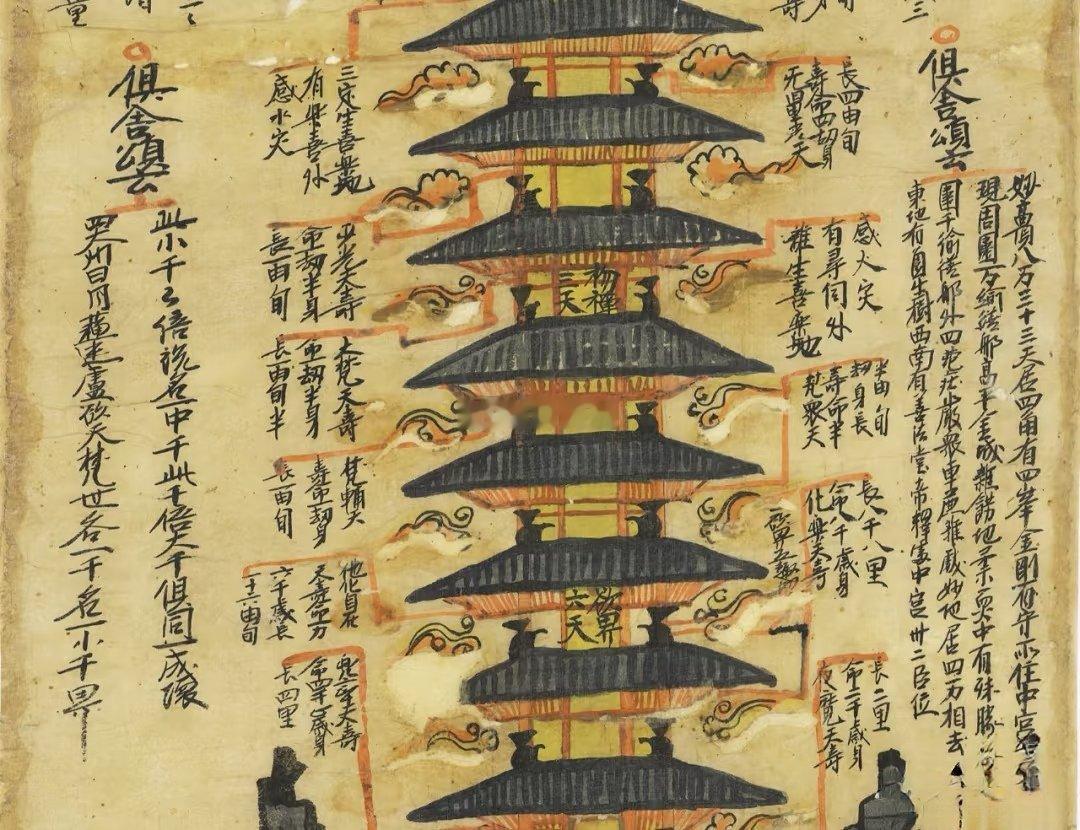 俱舍頌云
妙高頂八万三十三天居四角有四峯金剛手所住中宮名善
現周圍万踰繕那高半金城雜餝地柔耎中有殊勝
圍千踰繕那外四苑庄嚴衆車麁雜喜妙地居四方相去
東北有圓生樹西南有善法堂帝釋處中宮卅二臣位
无量光天
壽命四劫身
長四由旬
離生喜樂地
有尋伺外
感火灾
梵衆天
壽命半
劫身長
半由旬
化樂天壽
命八千歲身
長八千八里
夜魔天壽
命二千歲身
長二里
初禪
三天
欲界
六天
定生喜樂地
有樂喜外
感水灾
少光天壽
命劫半身
長一由旬
大梵天壽
命劫半身
長一由旬半
梵輔天
壽命劫身
長由旬
他自在
天壽命万
六千歲長
十二由旬
兜率天壽
命四千歲身
長四里
俱舍頌云
四大州日月蘇迷盧欲天梵世各一千名一小千界
此小千千倍說名一中千此千倍大千俱同一成壞